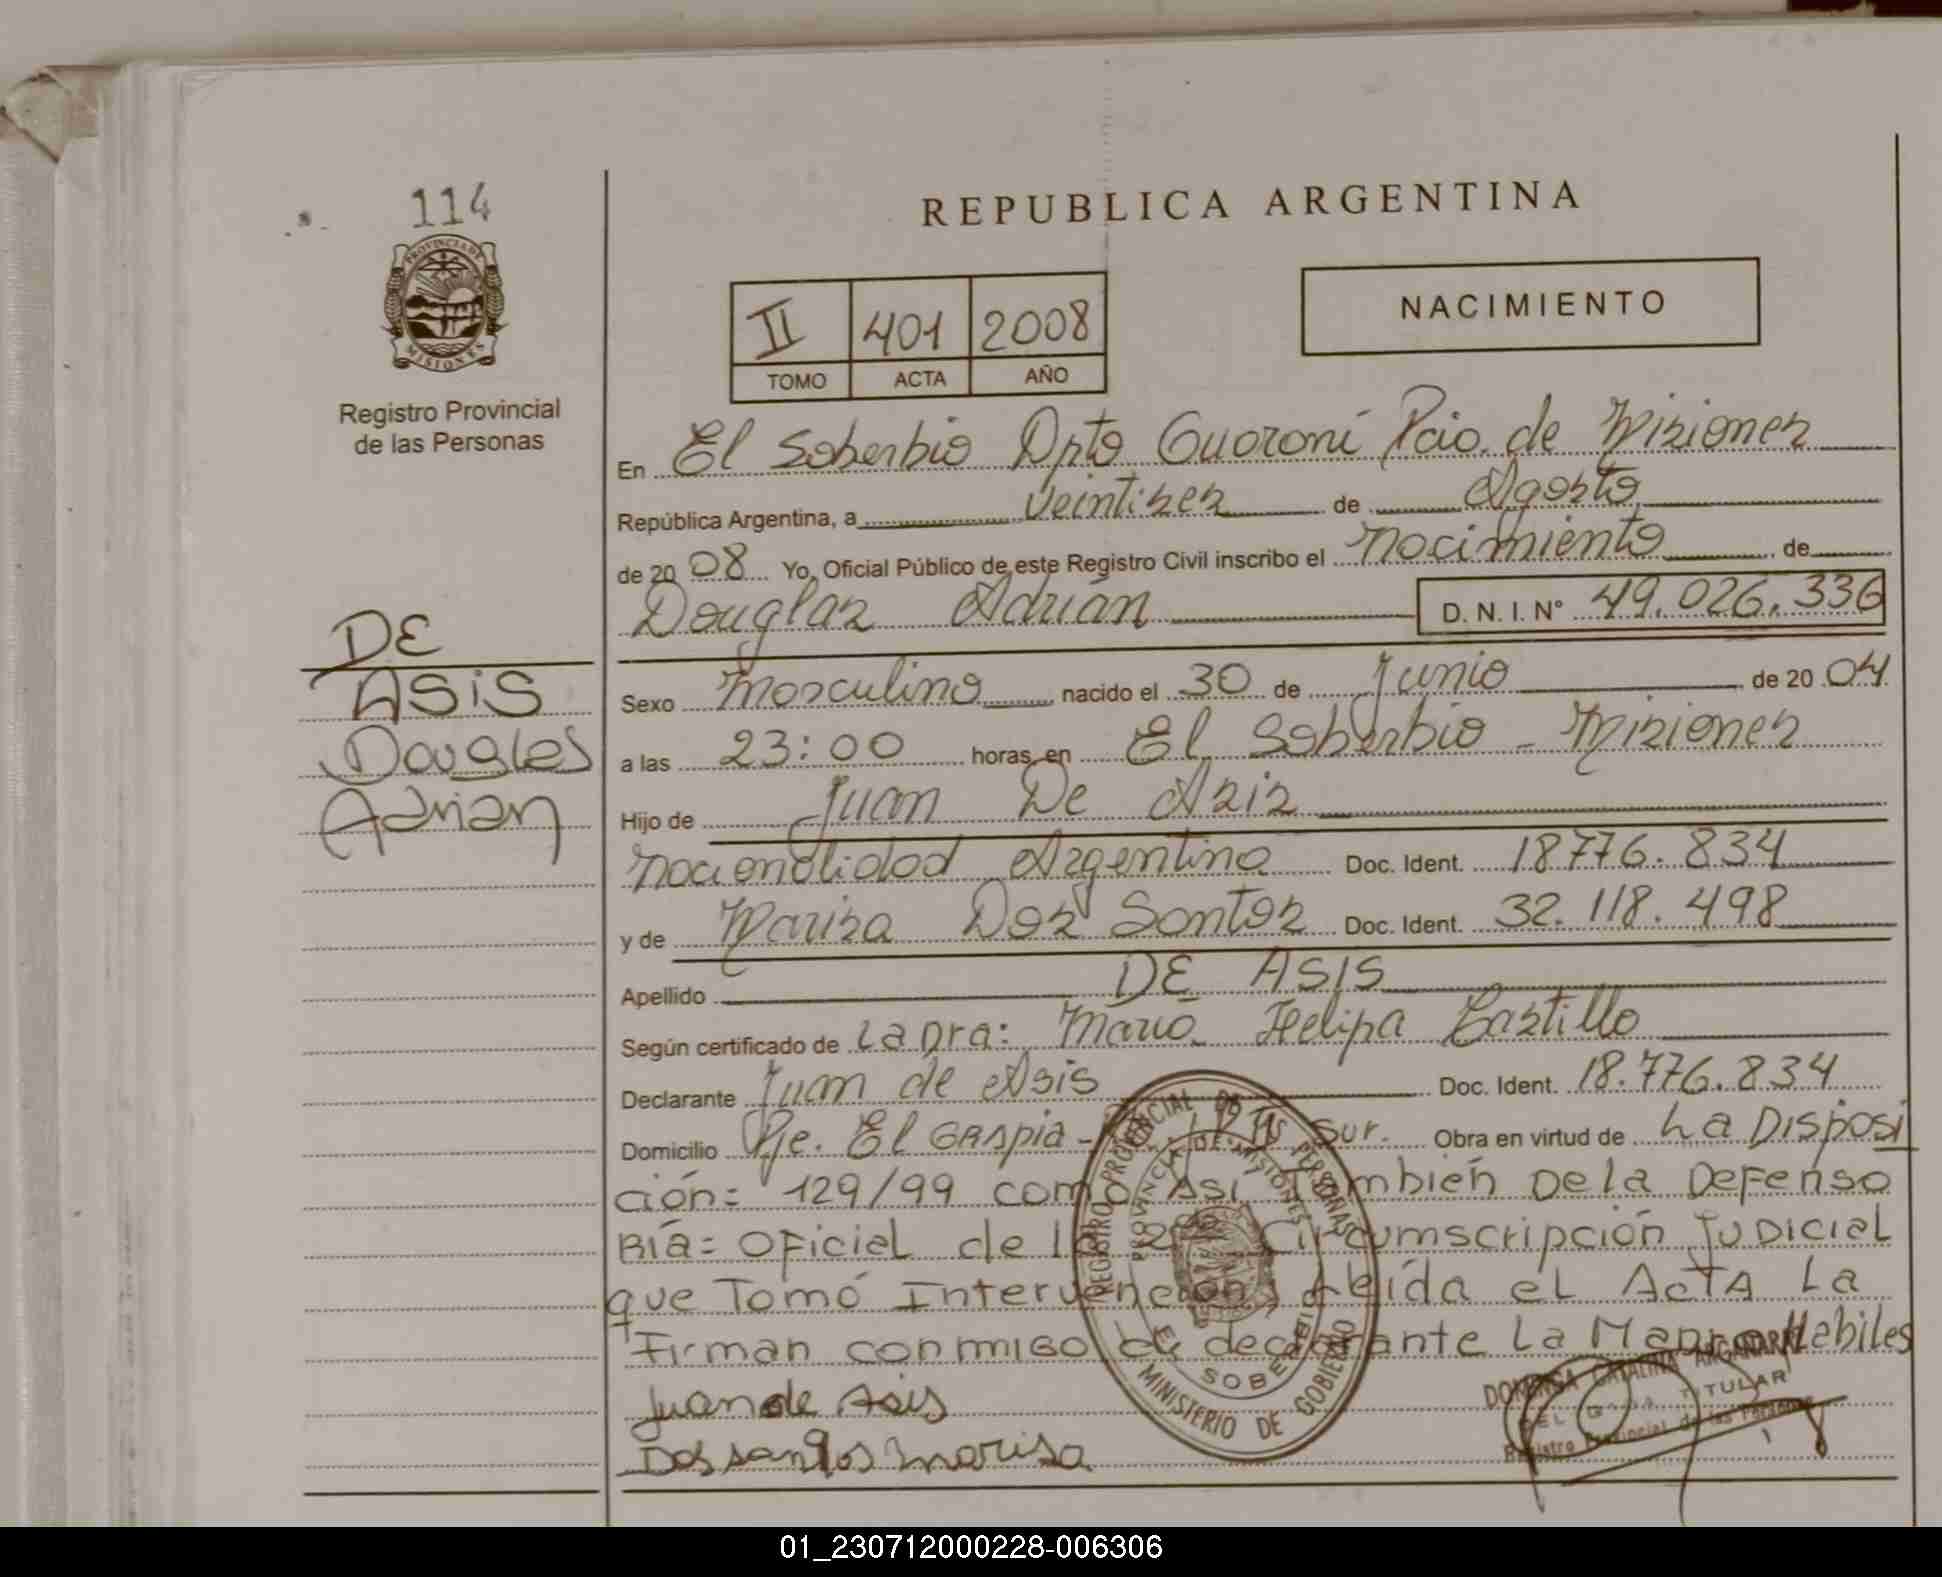 114
PROVINCIA DE
MISIONES
Registro Provincial
de las Personas
REPUBLICA ARGENTINA
II 401 2008
TOMO ACTA AÑO
NACIMIENTO
En El Soberbio Dpto Guaraní Pcia. de Misiones
República Argentina, a veintises de Agosto
de 2008 Yo, Oficial Público de este Registro Civil inscribo el nacimiento de
Douglas Adrián D. N. I. N° 49.026.336
DE
ASiS
Douglas
Adrian
Sexo Masculino nacido el 30 de Junio de 2004
a las 23:00 horas en El Soberbio - Misiones
Hijo de Juan De Asis
nacionalidad Argentina Doc. Ident. 18776.834
y de Marisa Dos Santos Doc. Ident. 32.118.498
Apellido DE ASIS
Según certificado de La Dra: Maria Felipa Castillo
Declarante Juan de Asis Doc. Ident. 18.776.834
Domicilio Pje. El Gaspia - Sur. Obra en virtud de La Disposi
ción: 129/99 como Asi También De la Defenso
Ria= Oficial de la 2da Circumscripción Judicial
que Tomó Intervención, Leida el Acta La
Firman conmigo el declarante La Madre Hebiles
Juan de Asis
Dos santos marisa
REGISTRO PROVINCIAL DE LAS PERSONAS
PROVINCIA DE MISIONES
EL SOBERBIO
MINISTERIO DE GOBIERNO
DOMINGA CATALINA ARGAÑARAZ
DEL TITULAR
Registro Provincial de las Personas
01_230712000228-006306